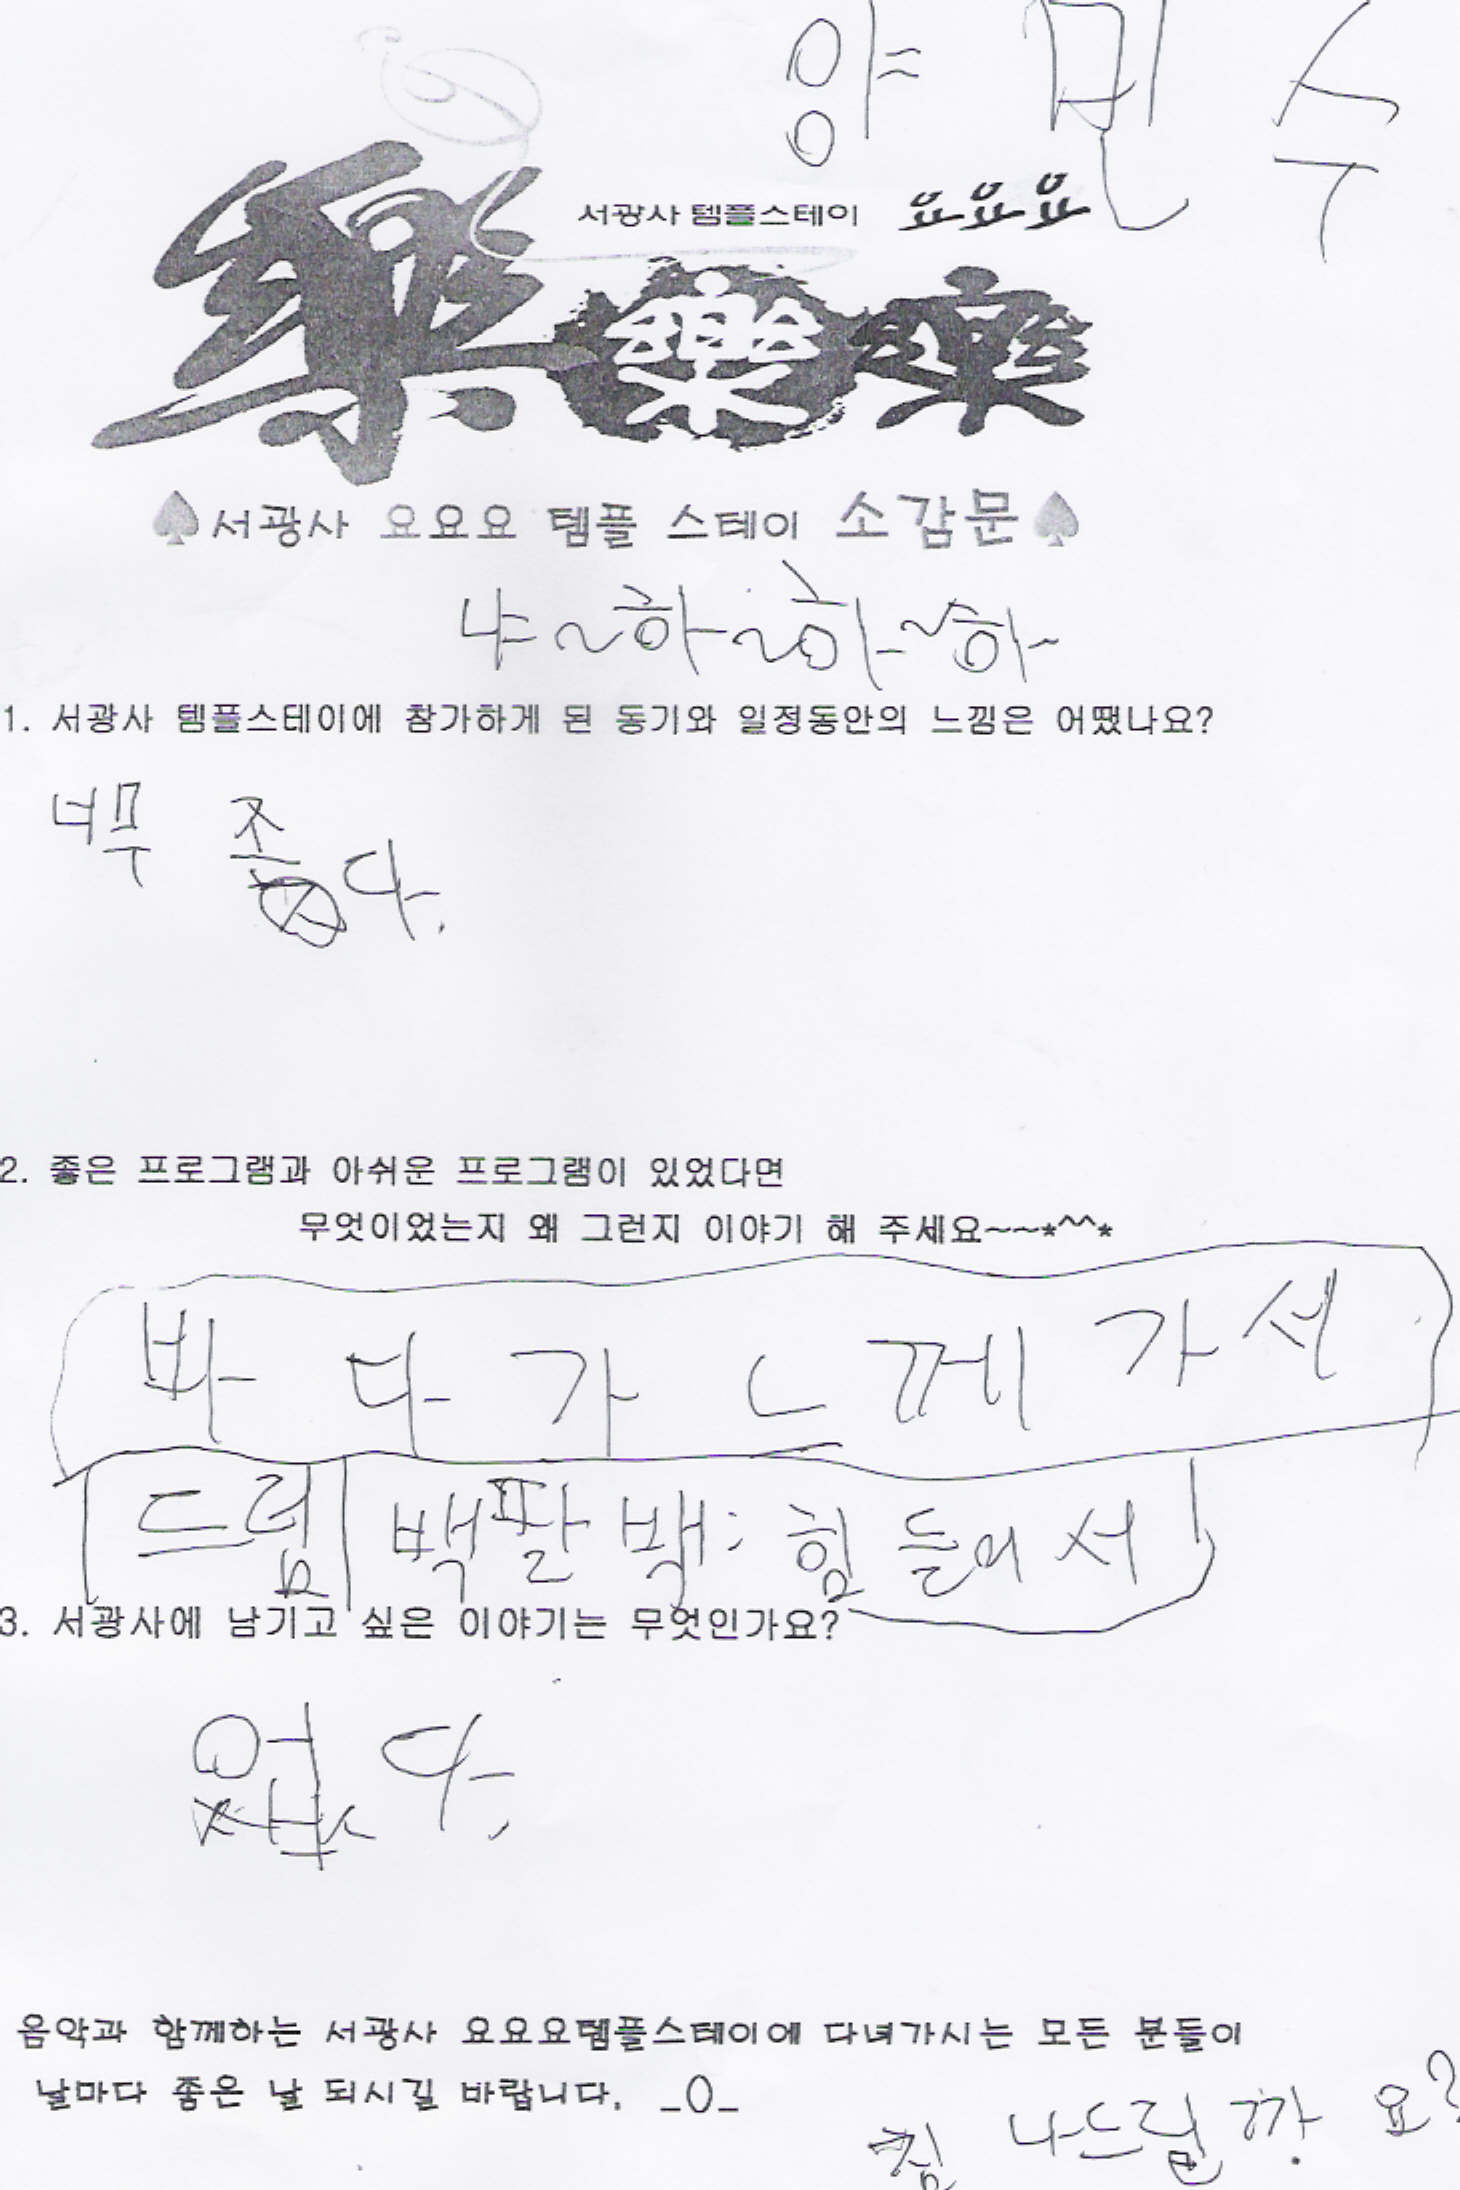 양민수
서광사 템플스테이 요요요
樂 樂 樂
♠서광사 요요요 템플 스테이 소감문♠
냐~하~하~하
1. 서광사 템플스테이에 참가하게 된 동기와 일정동안의 느낌은 어땠나요?
너무 좋다.
2. 좋은 프로그램과 아쉬운 프로그램이 있었다면
무엇이었는지 왜 그런지 이야기 해 주세요~~*^^*
바다가느께가서
드럼 백팔배: 힘들어서
3. 서광사에 남기고 싶은 이야기는 무엇인가요?
없다.
음악과 함께하는 서광사 요요요템플스테이에 다녀가시는 모든 분들이
날마다 좋은 날 되시길 바랍니다. _O_
침 나드릴까요?